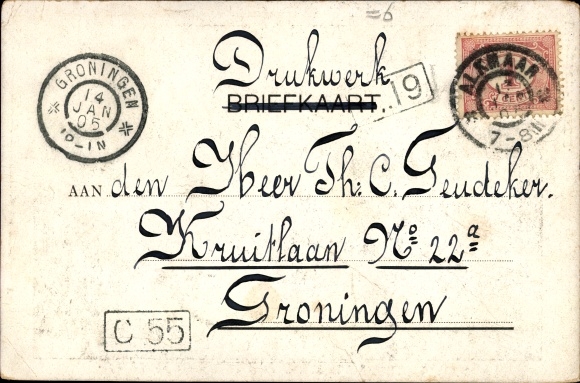 =6
Drukwerk
BRIEFKAART
19
GRONINGEN
14
JAN
05
ALKMAAR
7-8N
AAN den Heer Th: C. Teudeker.
Kruitlaan No 22a
Groningen
C 55